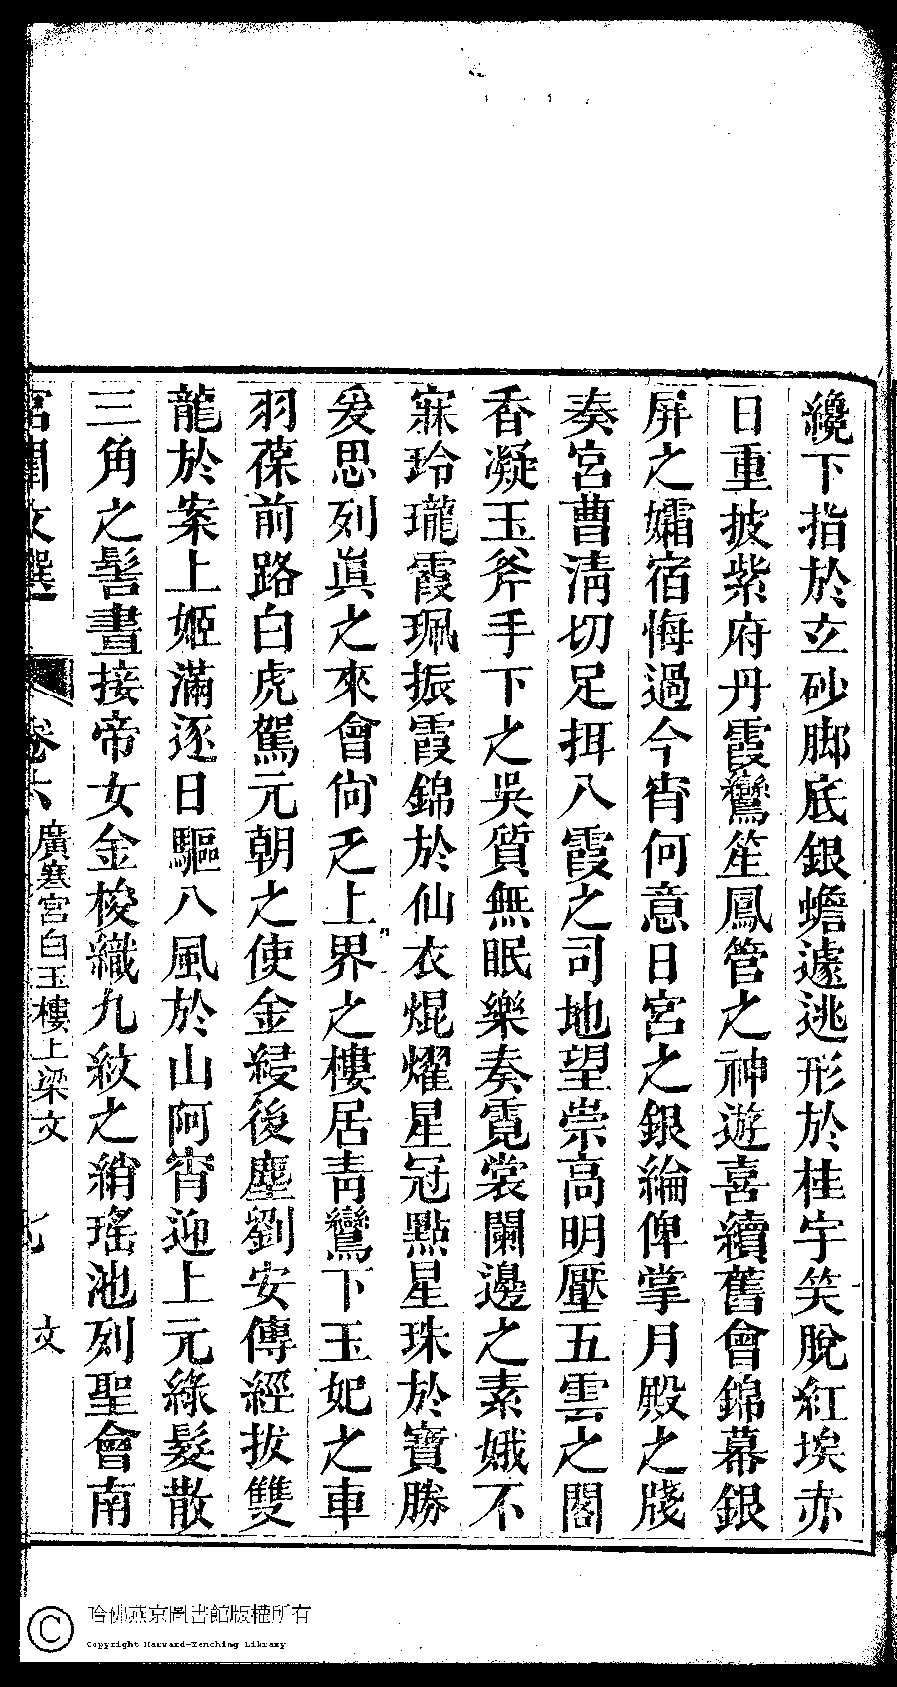 纔下指於立砂脚底銀蟾遽逃形於桂宇笑脫紅埃赤
日重披紫府丹霞鸞笙鳳管之神遊喜續舊會錦幕銀
屏之孀宿悔過今宵何意日宮之銀綸俾掌月殿之牋
奏宮曹淸切足挕八霞之司地望崇高明壓五雲之閣
香凝玉斧手下之吳質無眠樂奏霓裳闌邊之素娥不
寐玲瓏霞珮振霞錦於仙衣焜燿星冠點星珠於寶勝
爰思列眞之來會尙乏上界之樓居靑鸞下玉妃之車
羽葆前路白虎駕元朝之使金綅後塵劉安傳經拔雙
龍於案上姬滿逐日驅八風於山阿宵迎上元綠髮散
三角之髻晝接帝女金梭織九紋之綃瑤池列聖會南
宮閨文選 卷六 廣寒宮白玉樓上梁文 文
哈佛燕京圖書館版權所有
Copyright Harvard-Yenching Library